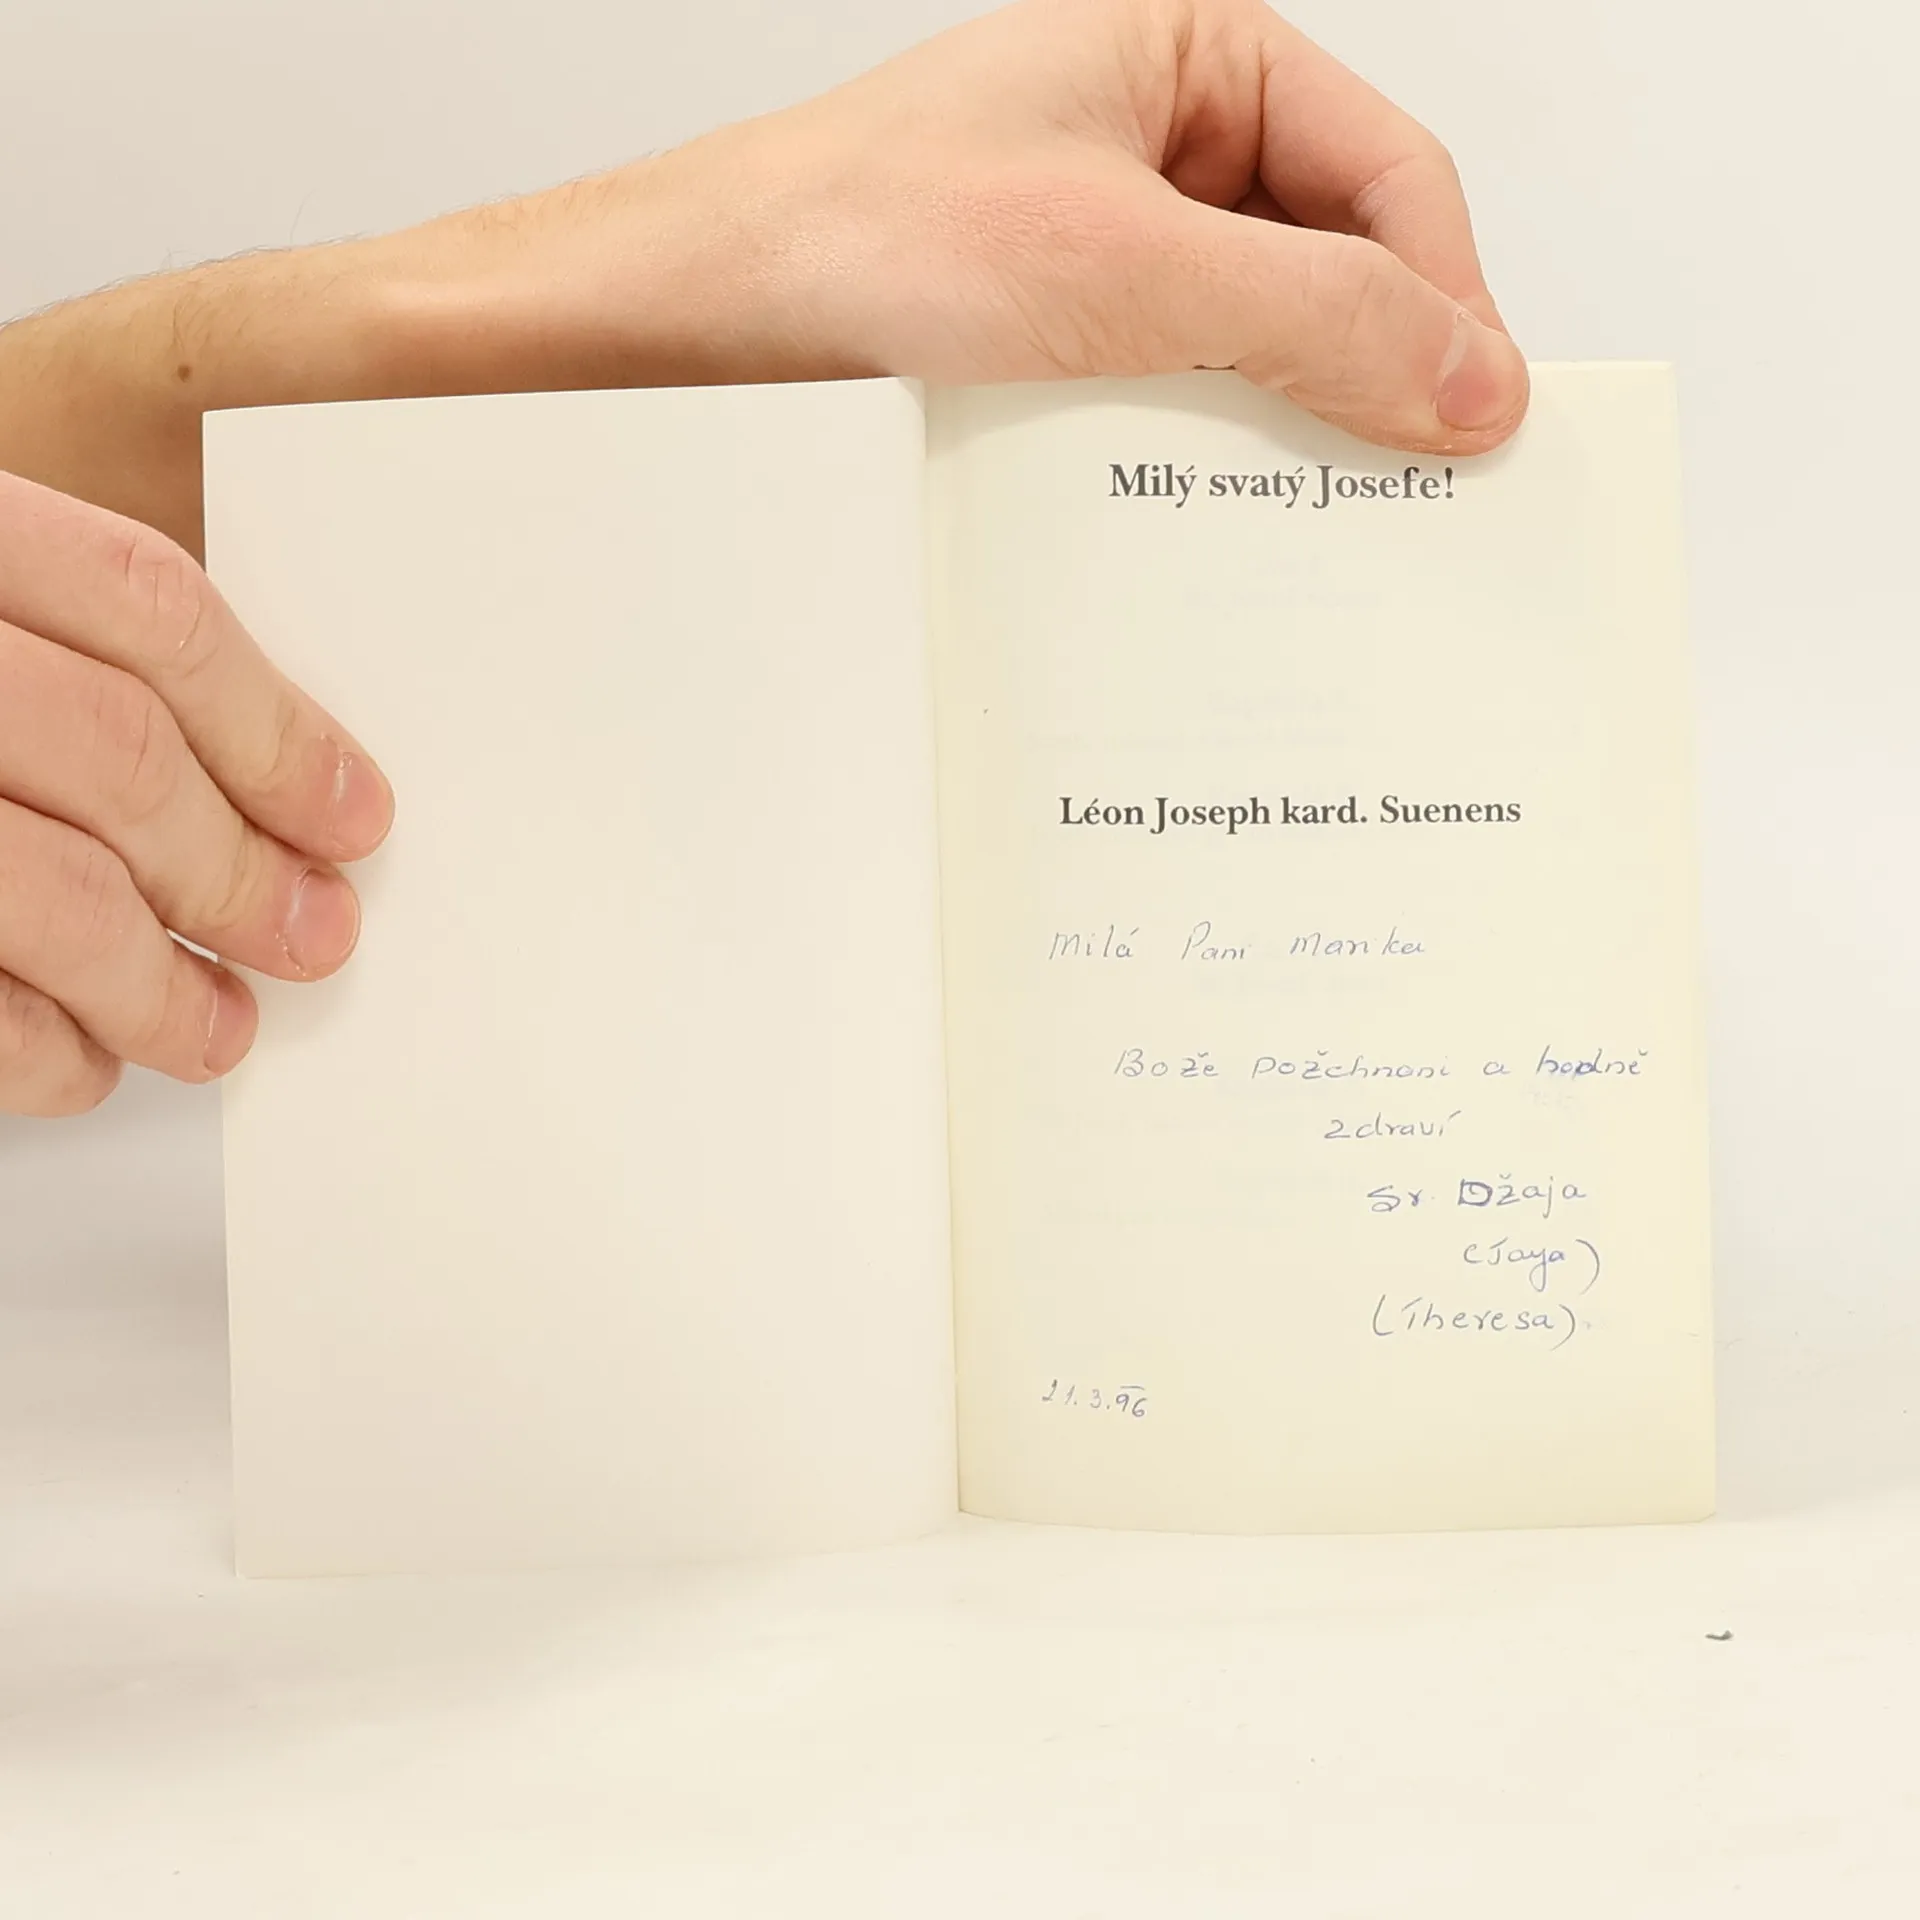 Milý svatý Josefe!
Léon Joseph kard. Suenens
Milá Pani Marika
Bože Požehnani a hodně
zdraví
Sr. Džaja
(Jaya)
(Theresa).
21.3.96